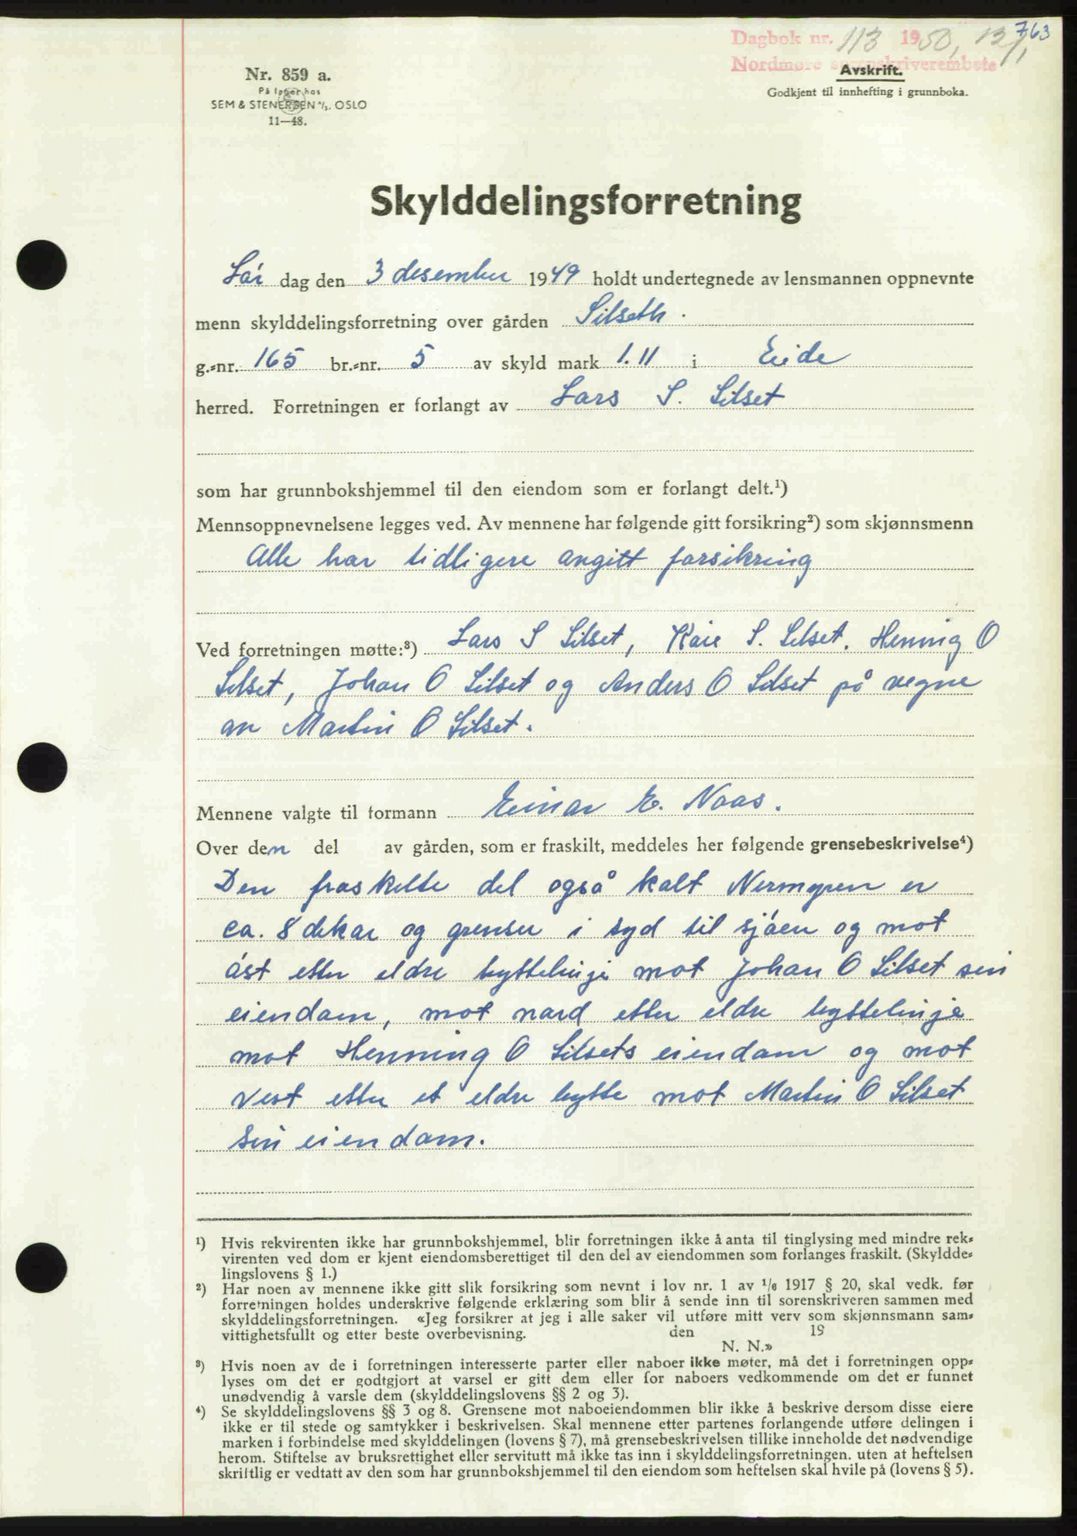 763
Dagbok nr. 113 1950, 13/1
Nordmøre sorenskriverembete
Avskrift.
Godkjent til innhefting i grunnboka.
Nr. 859 a.
På lager hos
SEM & STENERSEN A/S. OSLO
11—48.
Skylddelingsforretning
Lör dag den 3 desember 1949 holdt undertegnede av lensmannen oppnevnte
menn skylddelingsforretning over gården Silseth.
g.-nr. 165 br.-nr. 5 av skyld mark 1.11 i Eide
herred. Forretningen er forlangt av Lars S. Silset
som har grunnbokshjemmel til den eiendom som er forlangt delt.¹)
Mennsoppnevnelsene legges ved. Av mennene har følgende gitt forsikring²) som skjønnsmenn
Alle har tidligere avgitt forsikring
Ved forretningen møtte:³) Lars S Silset, Kåre S. Silset. Henning O
Silset, Johan O Silset og Anders O Silset på vegne
av Martin O Silset.
Mennene valgte til formann Einar E. Naas.
Over den del av gården, som er fraskilt, meddeles her følgende grensebeskrivelse⁴)
Den fraskilte del også kalt Nermyren er
ca. 8 dekar og grenser i syd til sjöen og mot
öst etter eldre byttelinje mot Johan O Silset sin
eiendom, mot nord etter eldre byttelinje
mot Henning O Silsets eiendom og mot
vest etter et eldre bytte mot Martin O Silset
sin eiendom.
¹) Hvis rekvirenten ikke har grunnbokshjemmel, blir forretningen ikke å anta til tinglysing med mindre rek-
virenten ved dom er kjent eiendomsberettiget til den del av eiendommen som forlanges fraskilt. (Skyldde-
lingslovens § 1.)
²) Har noen av mennene ikke gitt slik forsikring som nevnt i lov nr. 1 av 1/6 1917 § 20, skal vedk. før
forretningen holdes underskrive følgende erklæring som blir å sende inn til sorenskriveren sammen med
skylddelingsforretningen. «Jeg forsikrer at jeg i alle saker vil utføre mitt verv som skjønnsmann sam-
vittighetsfullt og etter beste overbevisning. den 19
N. N.»
³) Hvis noen av de i forretningen interesserte parter eller naboer ikke møter, må det i forretningen opp-
lyses om det er godtgjort at varsel er gitt dem eller for naboers vedkommende om det er funnet
unødvendig å varsle dem (skylddelingslovens §§ 2 og 3).
⁴) Se skylddelingslovens §§ 3 og 8. Grensene mot naboeiendommen blir ikke å beskrive dersom disse eiere
ikke er til stede og samtykker i beskrivelsen. Skal mennene etter partenes forlangende utføre delingen i
marken i forbindelse med skylddelingen (lovens § 7), må grensebeskrivelsen tillike inneholde det nødvendige
herom. Stiftelse av bruksrettighet eller servitutt må ikke tas inn i skylddelingsforretningen, uten at heftelsen
skriftlig er vedtatt av den som har grunnbokshjemmel til den eiendom som heftelsen skal hvile på (lovens § 5).